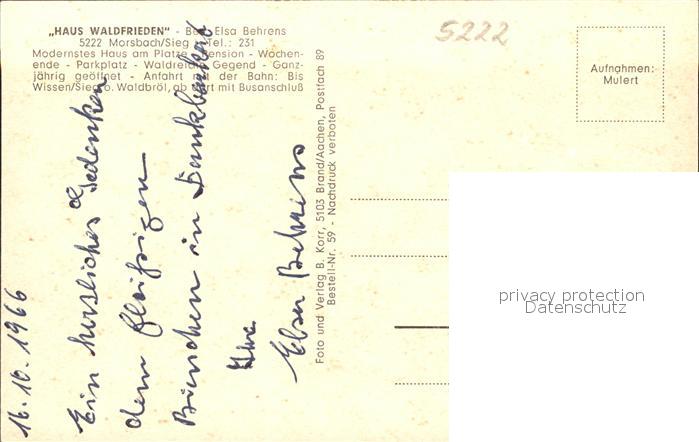 „HAUS WALDFRIEDEN" - Bes. Elsa Behrens
5222 Morsbach/Sieg - Tel.: 231
Modernstes Haus am Platze - Pension - Wochen-
ende - Parkplatz - Waldreiche Gegend - Ganz-
jährig geöffnet - Anfahrt mit der Bahn: Bis
Wissen/Sieg o. Waldbröl, ab dort mit Busanschluß
5222
Aufnahmen:
Mulert
16.10.1966
Ein herzliches Gedenken
dem fleißigen
Bienchen in Dankbarkeit
Ihre
Elsa Behrens
Foto und Verlag B. Korr, 5103 Brand/Aachen, Postfach 89
Bestell-Nr. 59 - Nachdruck verboten
privacy protection
Datenschutz